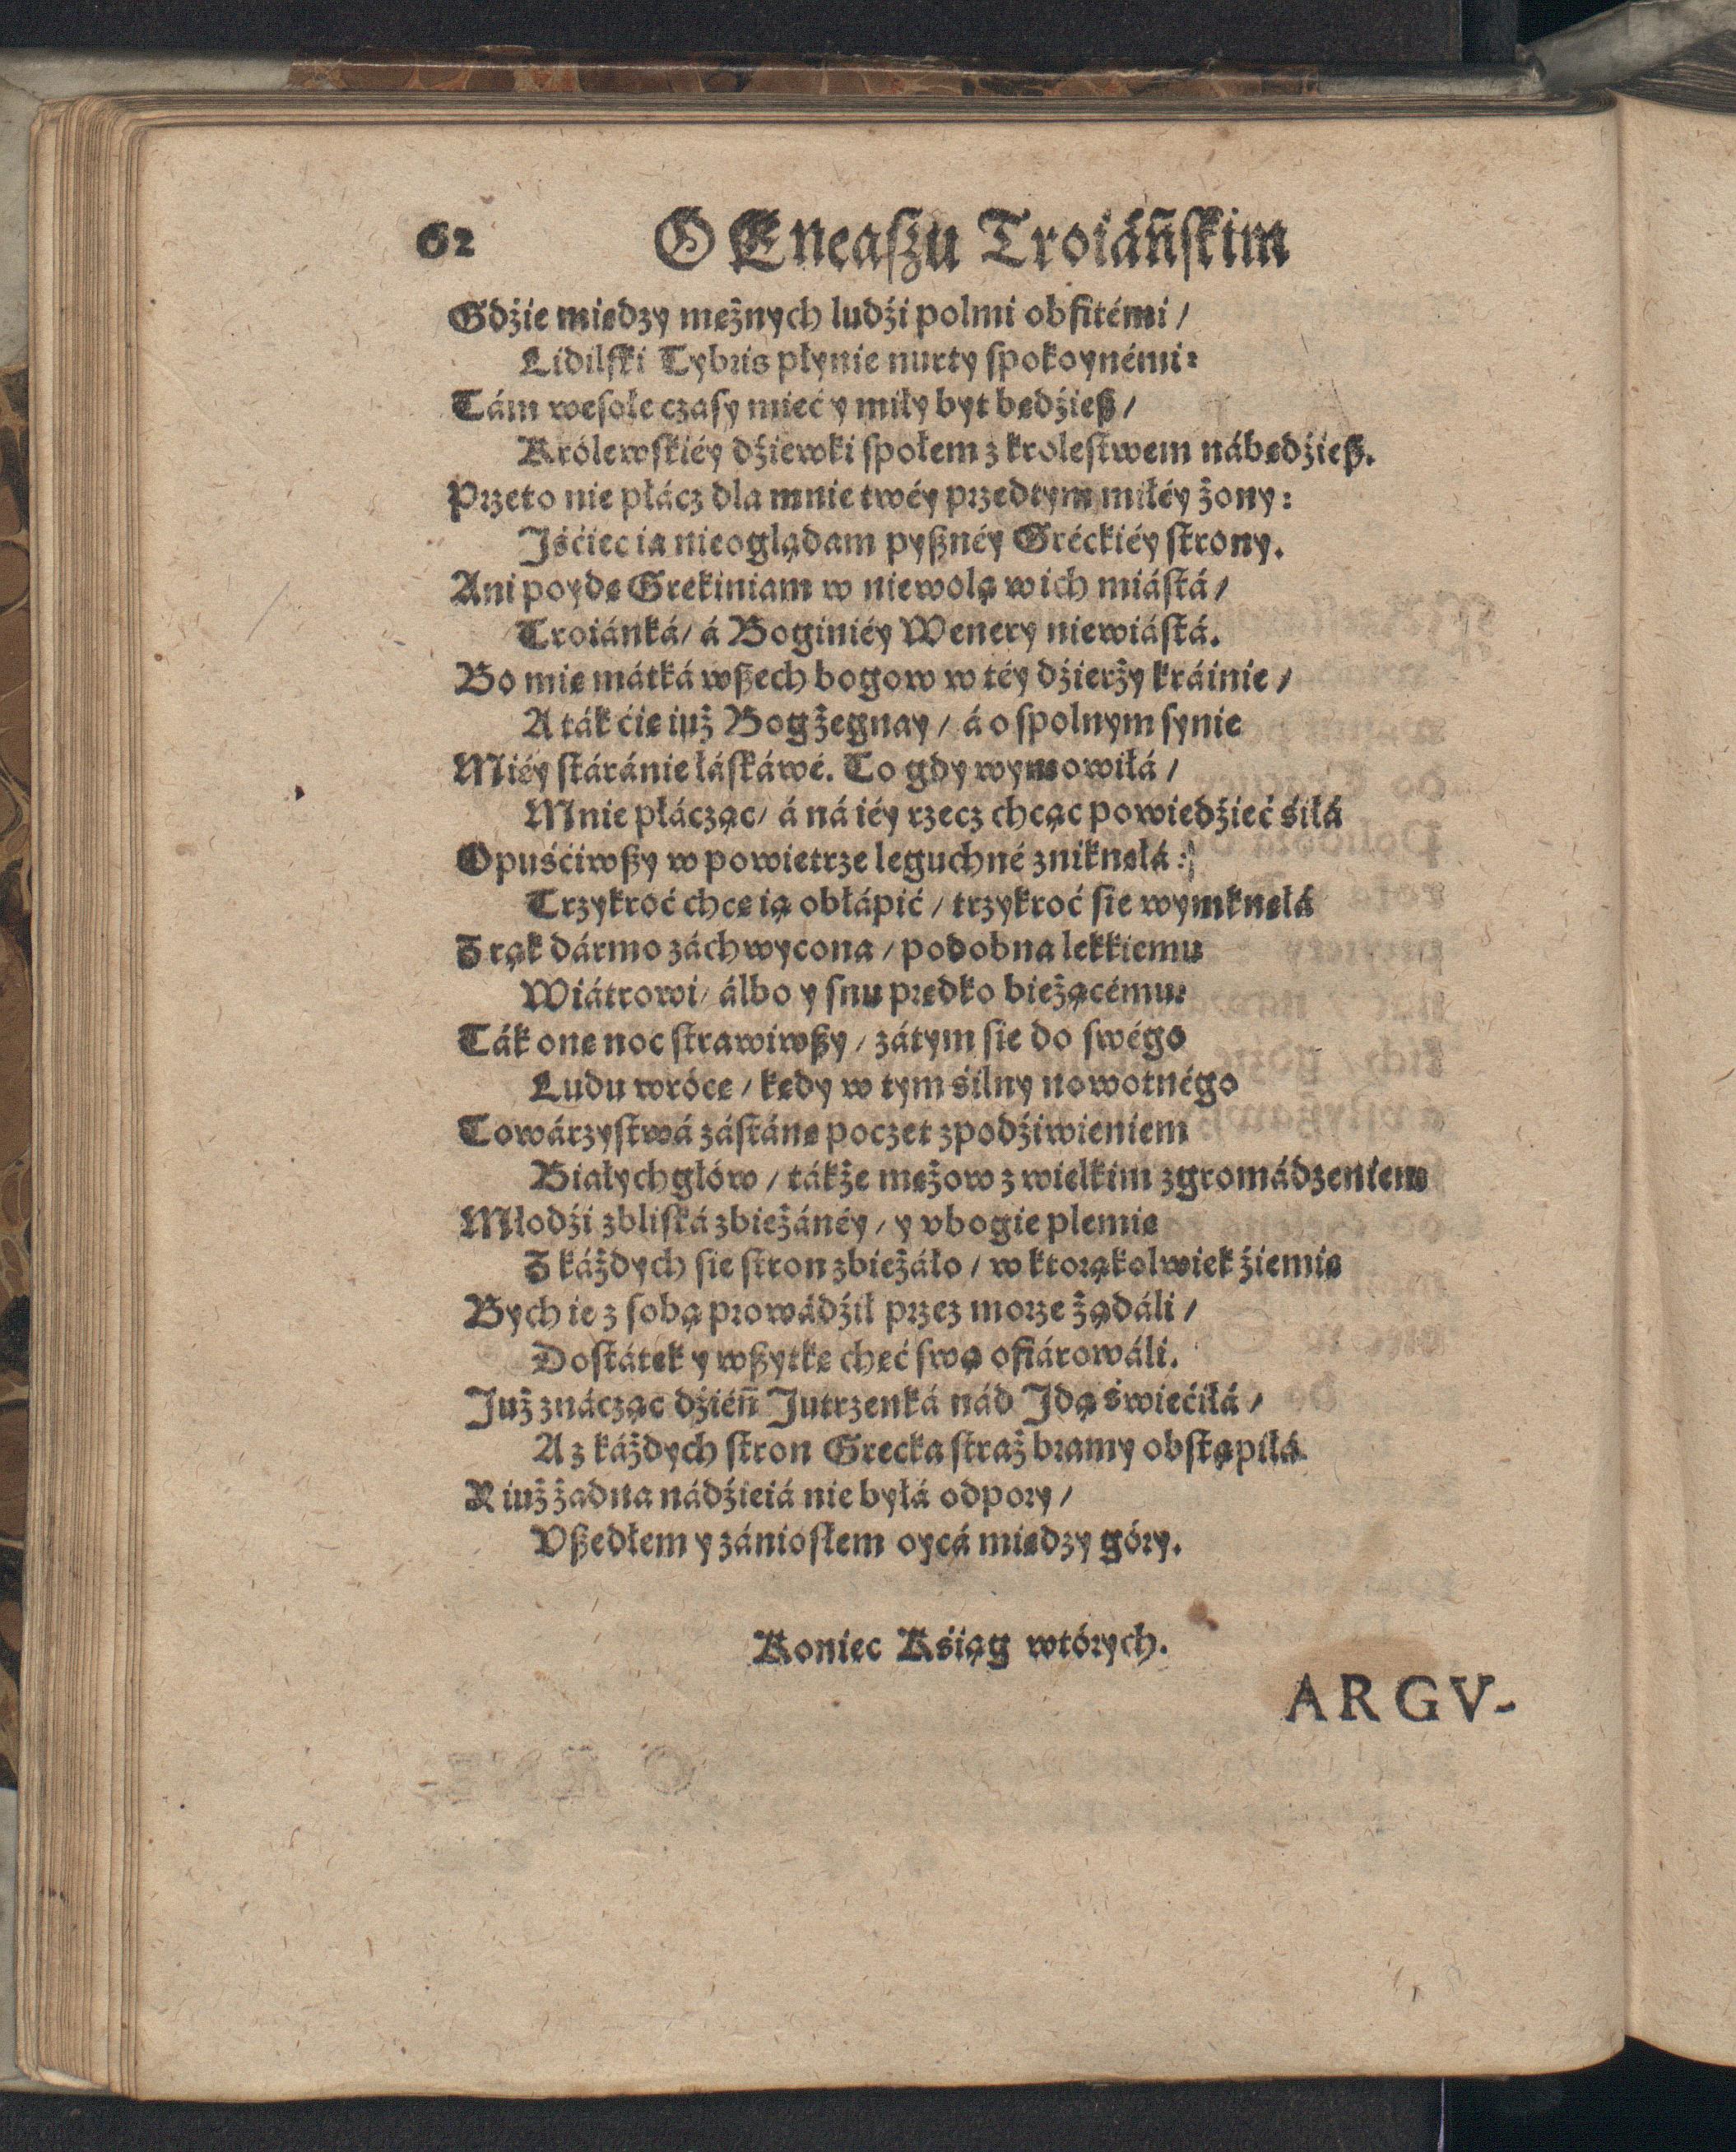 62 O Eneaszu Troiáńskim
Gdźie między mężnych ludźi polmi obfitémi /
Lidilski Tybris płynie nurty spokoynémi:
Tám wesołe czasy mieć y miły byt będźiesz /
Królewskiéy dźiewki społem z krolestwem nábędźiesz.
Przeto nie płácz dla mnie twéy przedtym miłéy żony:
Iśćiec ia nieoglądam pysznéy Gréckiéy strony.
Ani poydę Grekiniam w niewolą w ich miástá /
Troiánká / á Boginiéy Wenery niewiástá.
Bo mię mátká wszech bogow w téy dźierży kráinie /
A ták ćię iuż Bog żegnay / á o spolnym synie
Miéy stáránie łáskáwé. To gdy wymowiłá /
Mnie płácząc / á ná iéy rzecz chcąc powiedźieć śiłá
Opuśćiwszy w powietrze leguchné zniknęłá:
Trzykroć chcę ią obłápić / trzykroć się wymknęłá
Z rąk dármo záchwycona / podobna lekkiemu
Wiátrowi / álbo y snu prędko bieżącému:
Ták onę noc strawiwszy / zátym się do swégo
Ludu wrócę / kędy w tym śilny nowotnégo
Towárzystwá zástánę poczet z podźiwieniem
Białychgłów / tákże mężow z wielkim zgromádzeniem
Młodźi z bliská zbieżánéy / y vbogie plemię
Z káżdych się stron zbieżáło / w ktorąkolwiek źiemię
Bych ie z sobą prowádźił przez morze żądáli /
Dostátek y wszytkę chęć swą ofiárowáli.
Już znácząc dźień Jutrzenká nád Idą świećiłá /
A z káżdych stron Grecka straż bramy obstąpiłá
R iuż żadna nádźieiá nie byłá odpory /
Vszedłem y zániosłem oycá między góry.
Koniec Kśiąg wtórych.
ARGV-